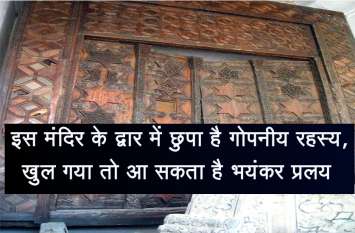 इस मंदिर के द्वार में छुपा है गोपनीय रहस्य,
खुल गया तो आ सकता है भयंकर प्रलय